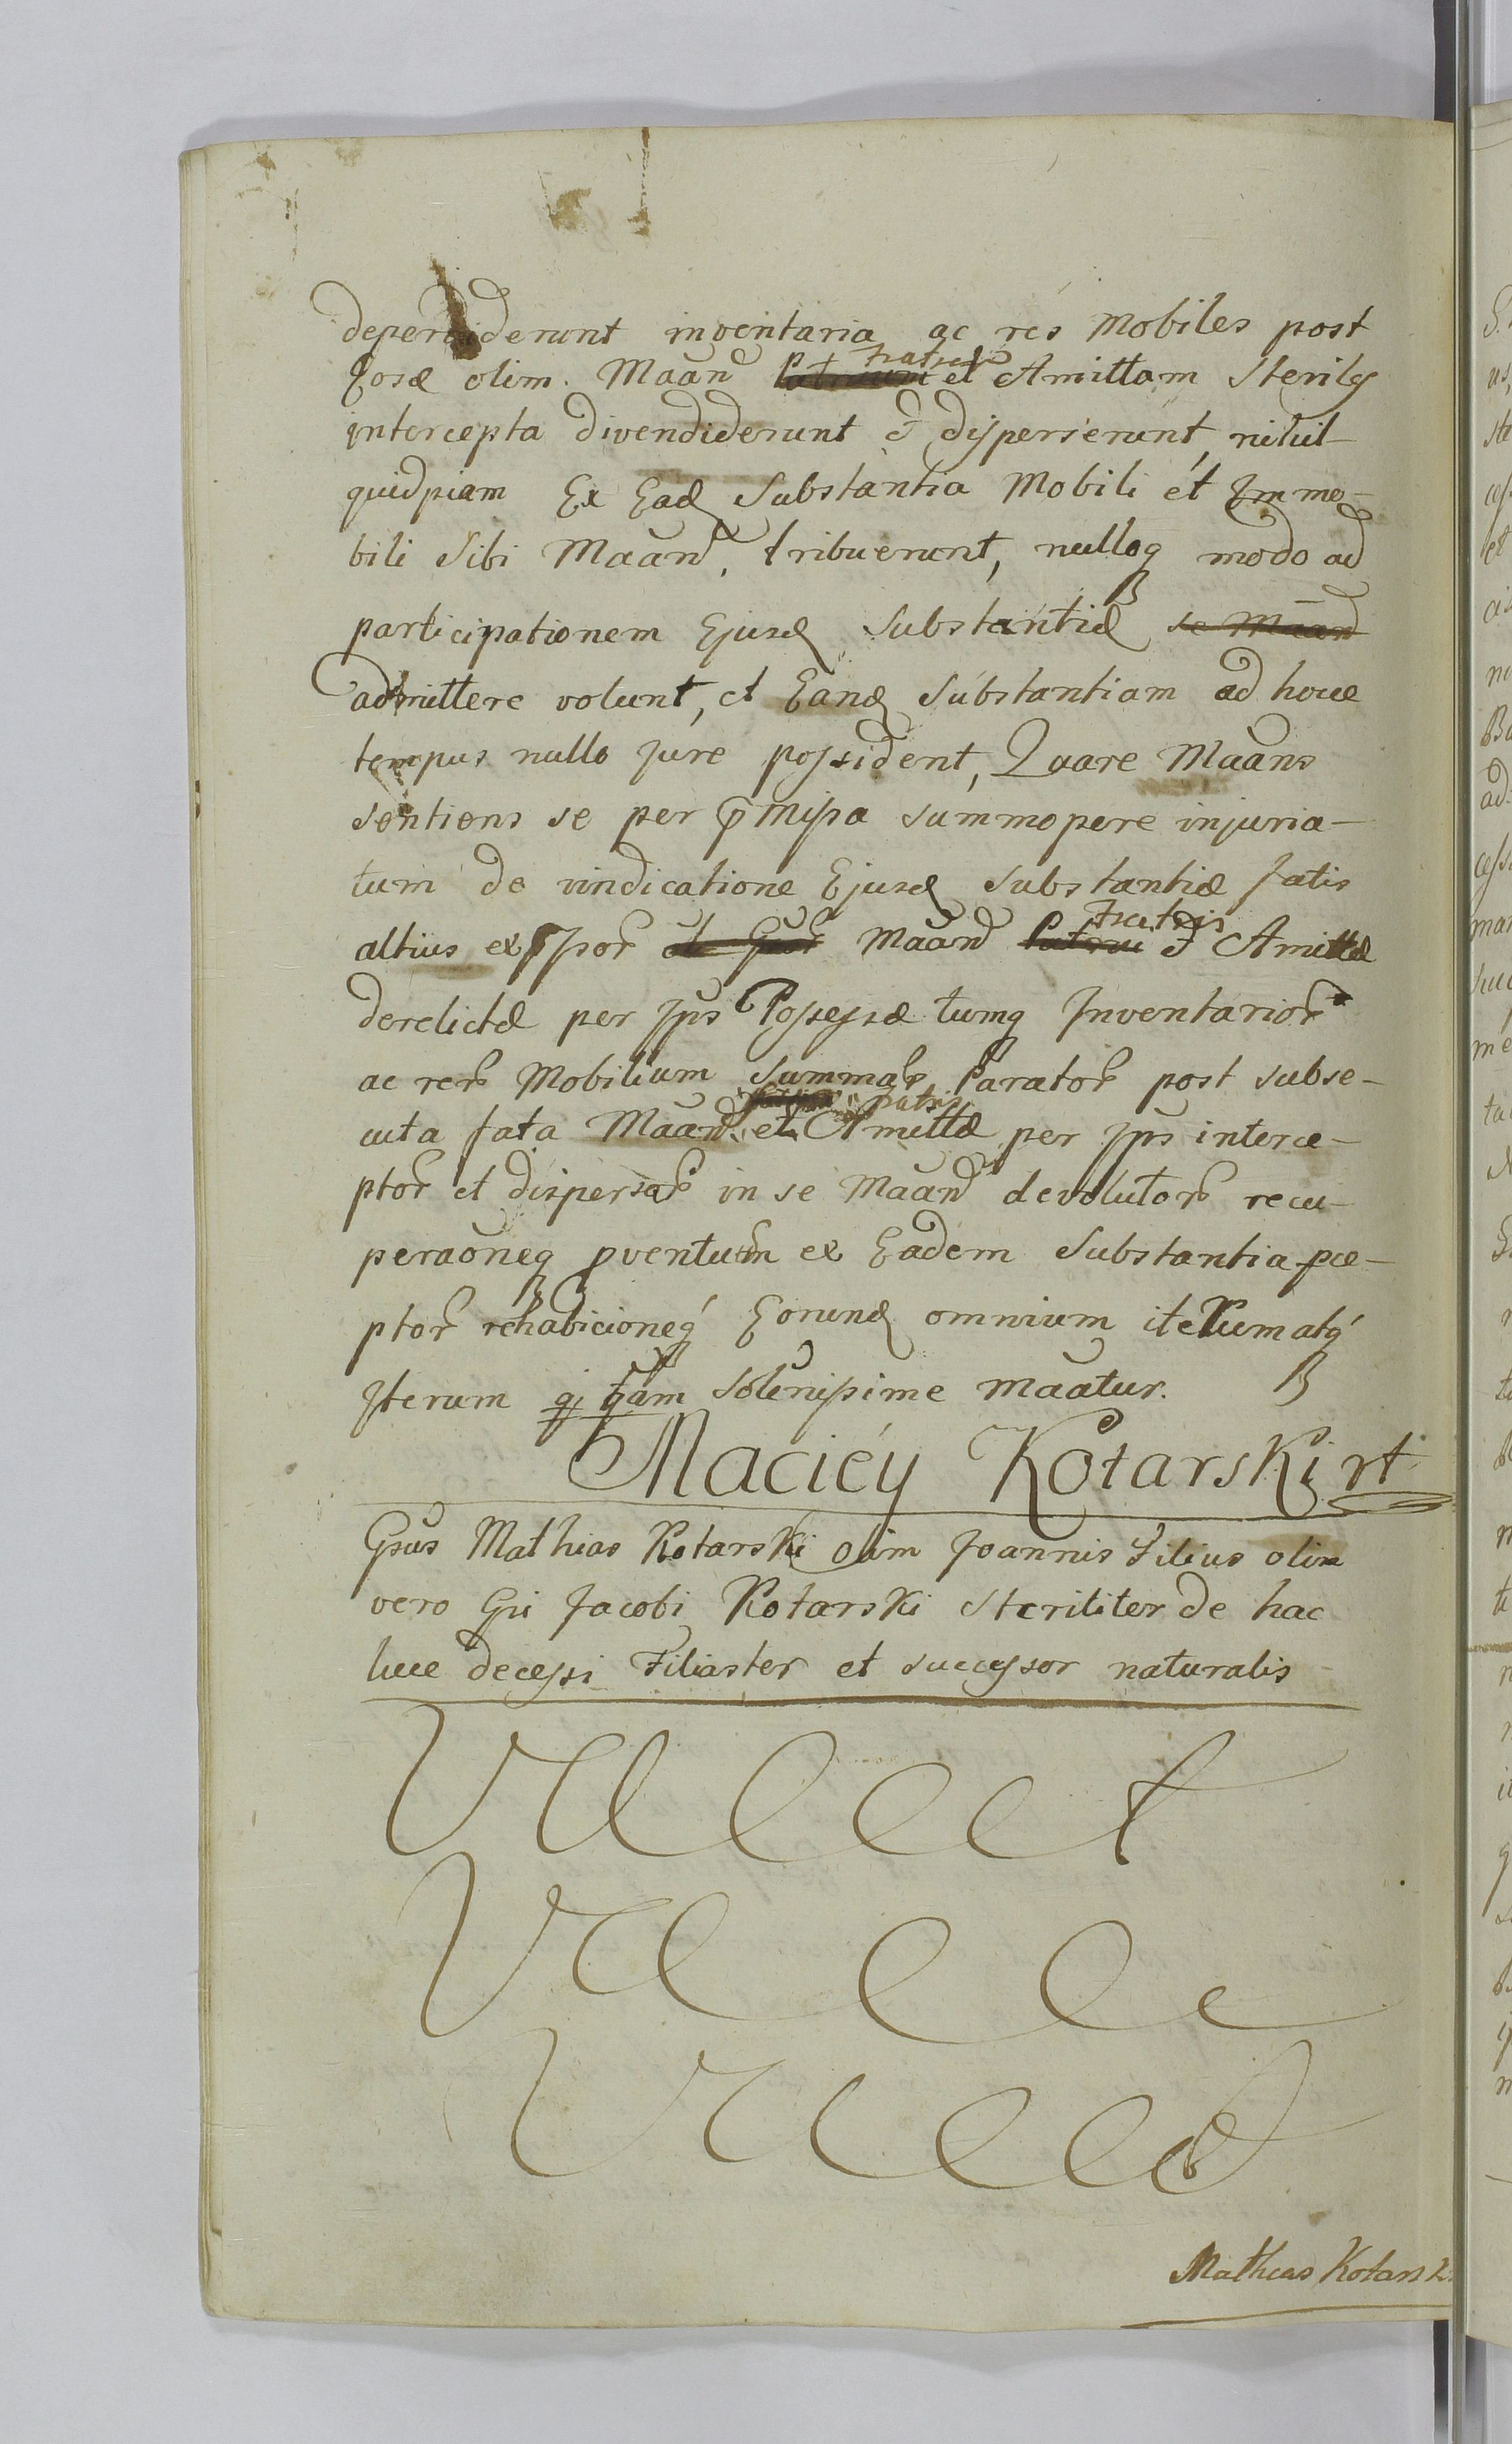 deperdiderunt inventaria ac res Mobiles post
Eosd olim. Maand Patruum et fratrem Amittam Steriles
intercepta divendiderunt et disperserunt, nihil
quidpiam Ex Ead Substantia Mobili et Immo-
bili Sibi Maand, tribuerunt, nulloq modo ad
participationem Ejusd Substantiæ se Maand
admittere volunt, et Eand Substantiam ad hocce
tempus nullo jure possident, Quare Maans
sentiens se per pmissa summopere injuria-
tum de vindicatione Ejusd Substantiæ fatis
altius expssor et Gsor Maand Patrui fratris et Amittæ
derelictæ per Ips Possessæ tumq Inventarior
ac rer Mobilium Summar Parator post subse-
cuta fata Maand. et patris Amittæ per Ips interce-
ptor et dispersar in se Maand devolutor recu-
peraoneq pventuum ex Eadem Substantia pce-
ptor rehabicioneq Eorund omnium iterumatq
Iterum qi qam Solenissime maatur.
Maciéy Kotarski rt
Gsus Mathias Kotarski olim Joannis Filius olim
vero Gsi Jacobi Kotarski steriliter de hac
luce decessi Filiaster et successor naturalis
Mathias Kotarsk